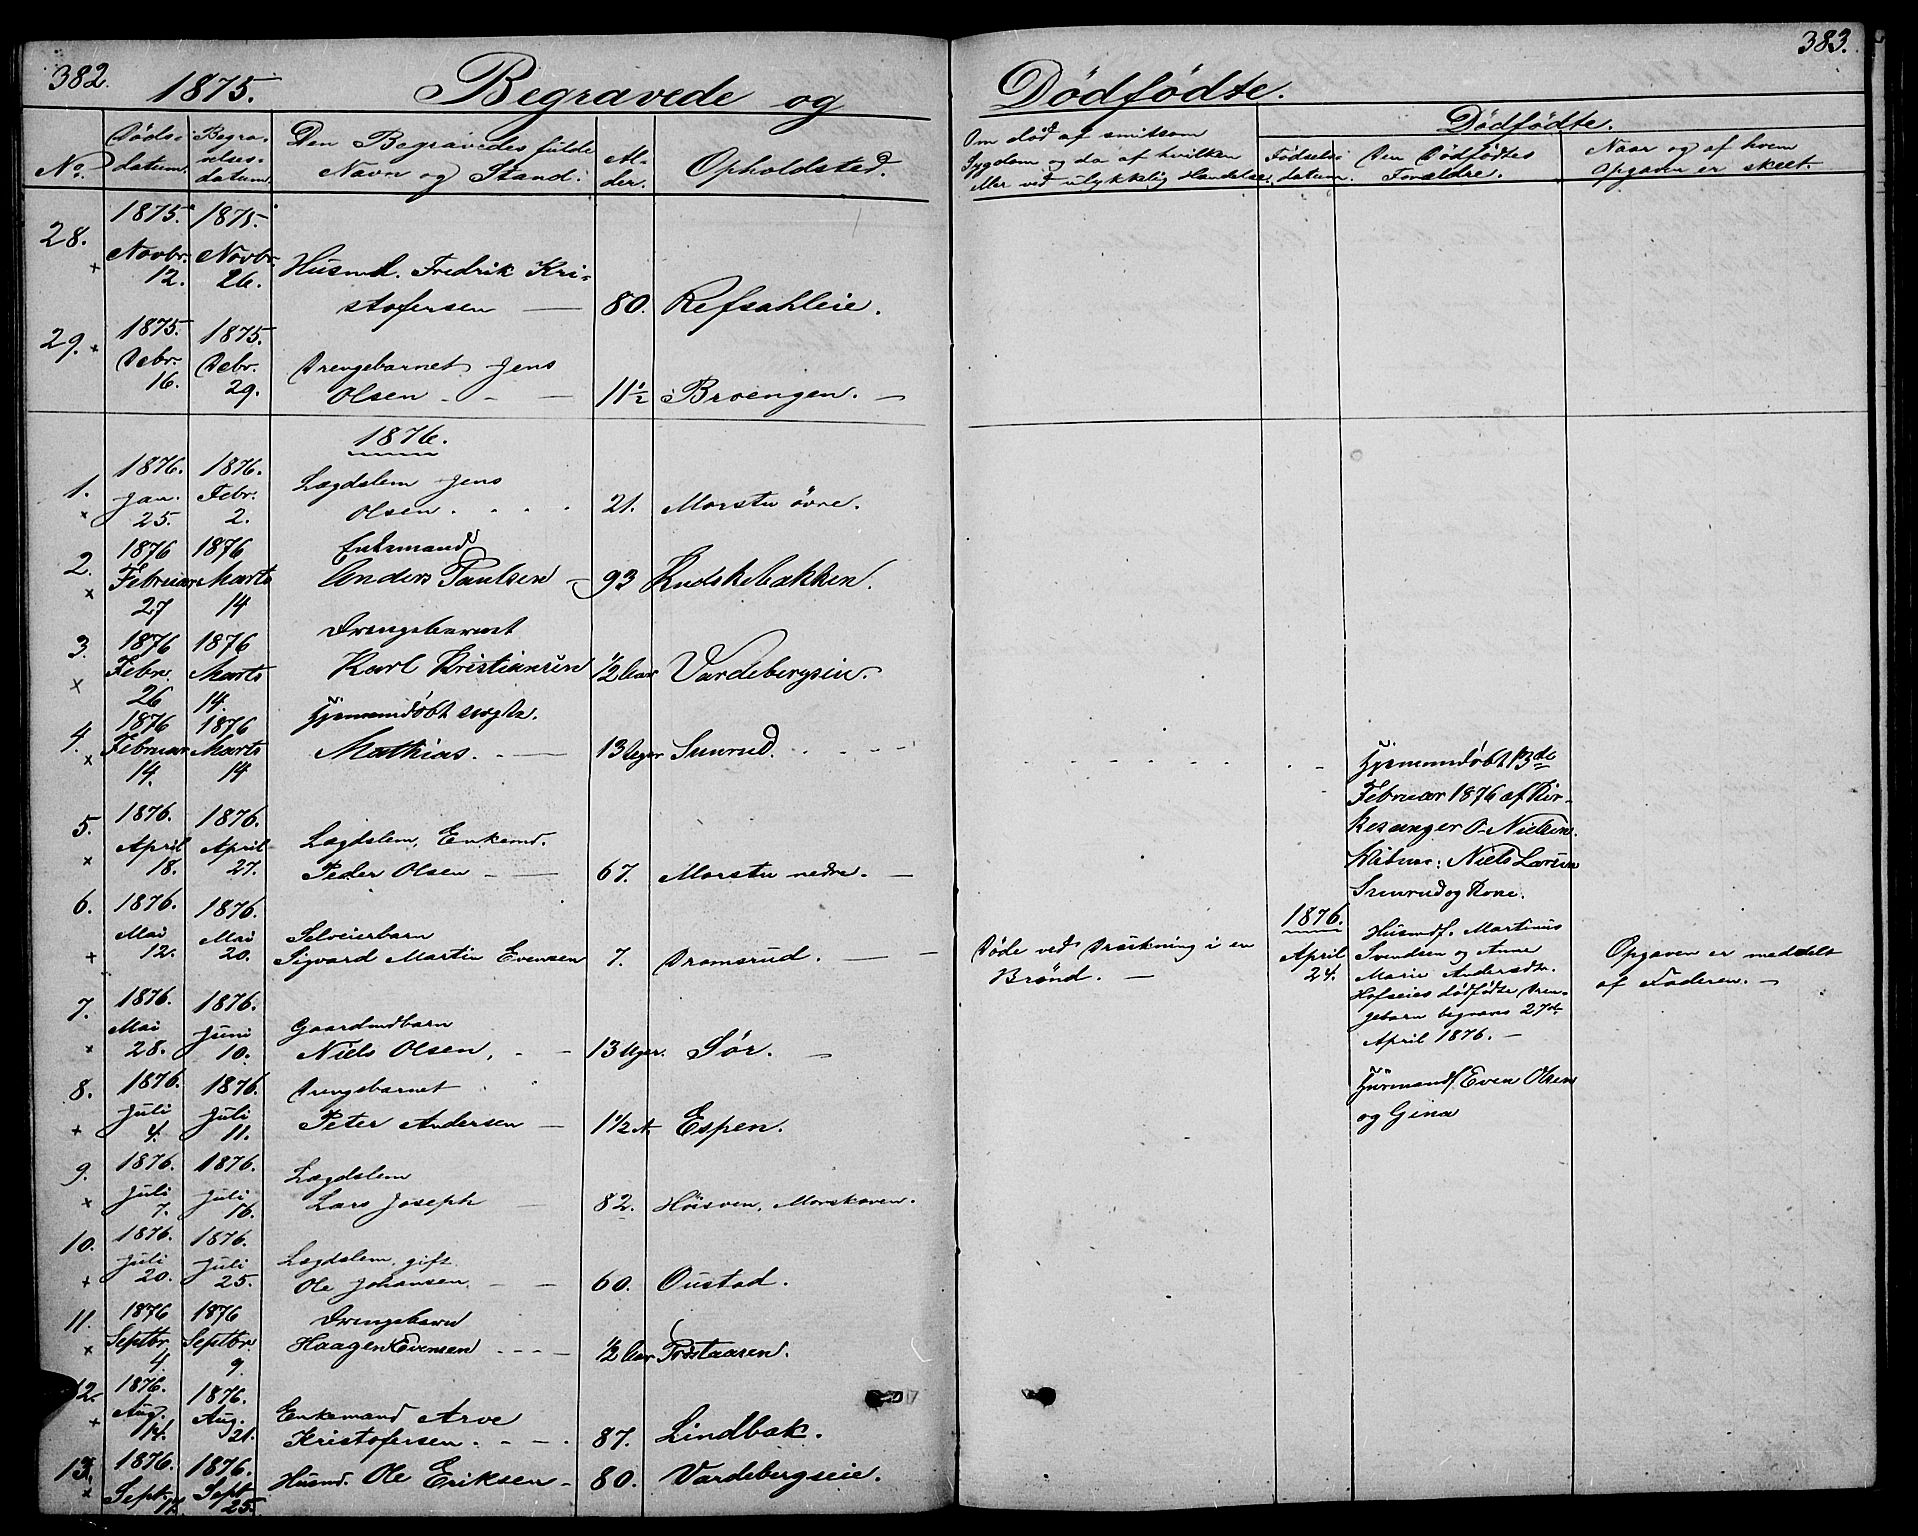 382.
1875.
Begravede og
No.
Døds-
datum.
Begra-
velses-
datum.
Den Begravedes fulde
Navn og Stand.
Al-
der.
Opholdsted.
28.
1875.
Novbr.
12.
1875.
Novbr.
26.
Husmd. Fredrik Kri-
stofersen
80.
Refsahleie.
29.
1875.
Debr.
16.
1875.
Debr.
29.
Drengebarnet Jens
Olsen
11 1/2
Broengen.
1876.
1.
1876.
Jan.
25.
1876.
Febr.
2.
Lægdslem Jens
Olsen.
21.
Morstu övre.
2.
1876
Februar
27
1876
Marts
14
Enkemand
Anders Paulsen
93
Knudskebakken.
3.
1876
Febru.
26
1876
Marts
14.
Drengebarnet
Karl Kristiansen
1/2 Aar
Vardebergseie.
4.
1876
Februar
14.
1876
Marts
14
Hjemmedöbt
Mathias.
13 Uger
Smerud.
5.
1876.
April
18.
1876.
April
27.
Lægdslem, Enkemd.
Peder Olsen
67.
Morstu nedre.
6.
1876.
Mai
12.
1876.
Mai
20.
Selveierbarn
Sigvard Martin Evensen
7.
Dromsrud.
7.
1876.
Mai
28.
1876.
Juni
10.
Gaardmdbarn
Niels Olsen,
13 Uger.
Sør.
8.
1876.
Juli
4.
1876.
Juli
11.
Drengebarnet
Peter Andersen
1 1/2 A.
Espen.
9.
1876.
Juli
7.
1876.
Juli
16.
Lægdslem
Lars Joseph
82.
Höisven, Morskoven.
10.
1876.
Juli
20.
1876.
Juli
25.
Lægdslem, gift
Ole Johansen
60.
Oustad.
11.
1876
Septbr.
4.
1876
Septbr.
9.
Drengebarn
Haagen Evensen
1/2 Aar
12.
1876.
Aug.
14.
1876.
Aug.
21.
Enkemand Arve
Kristofersen.
87.
Lindbak.
13.
1876.
Sept.
17.
1876.
Sept
25.
Husmd. Ole Eriksen
80.
Vardebergseie.
383.
Dödfödte.
Om död af smitsom
Sygdom og da af hvilken
eller ved ulykkelig Hændelse.
Dödfödte.
Fødsels-
datum.
Den Dödfödtes
Forældre.
Naar og af hvem
Opgaven er skeet.
Hjemmedöbt 13de
Februar 1876 af Kir-
kesanger O. Nielsen.
Vidner: Niels Larsen
Smerud og Kone.
Döde ved Drukning i en
Brönd.
1876.
April
24.
Husmdf. Martinus
Svendsen og Anne
Marie Andersdtr.
Hofseies dödfödte Dren-
gebarn begraves 27de
April 1876.
Opgaven er meddelt
af Faderen.
Even Olsen
og Gina